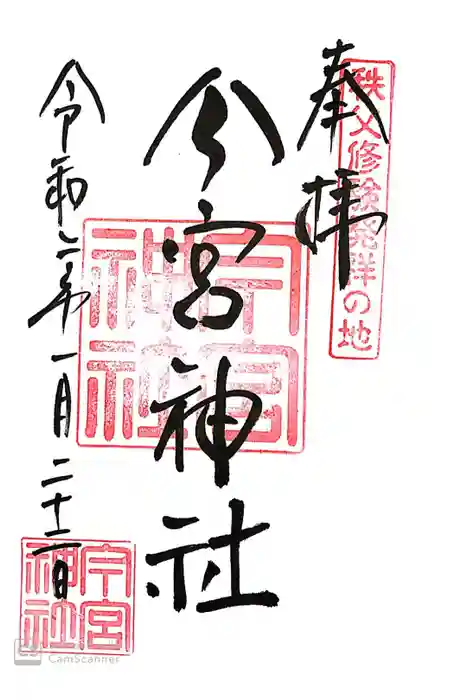 秩父修験発祥の地
奉拝
今宮神社
今宮神社
令和二年一月二十二日
今宮神社
CS CamScanner